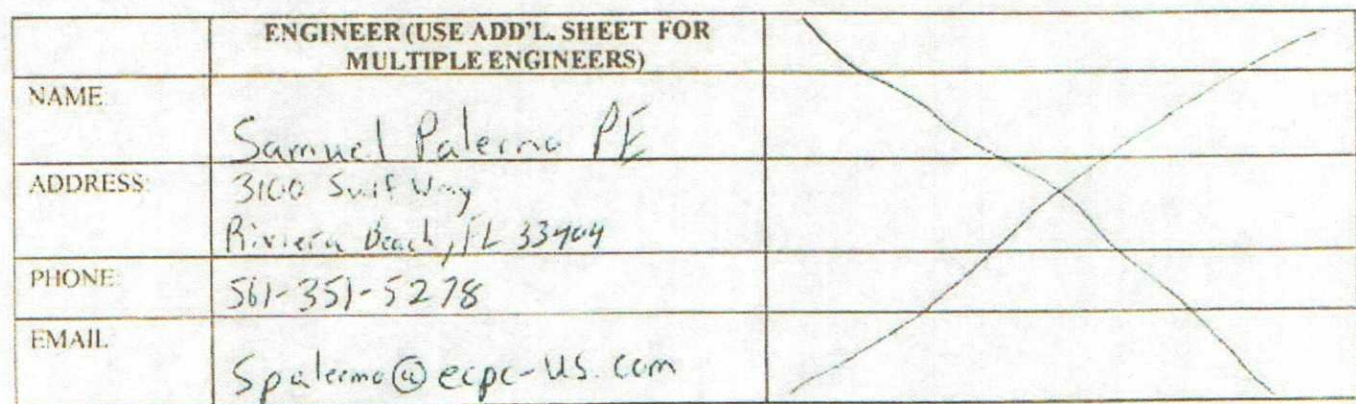 ENGINEER (USE ADD'L. SHEET FOR
MULTIPLE ENGINEERS)
NAME:
Samuel Palermo PE
ADDRESS:
3100 Surf Way
Riviera Beach, FL 33404
PHONE:
561-351-5278
EMAIL:
Spalermo@ecpc-us.com